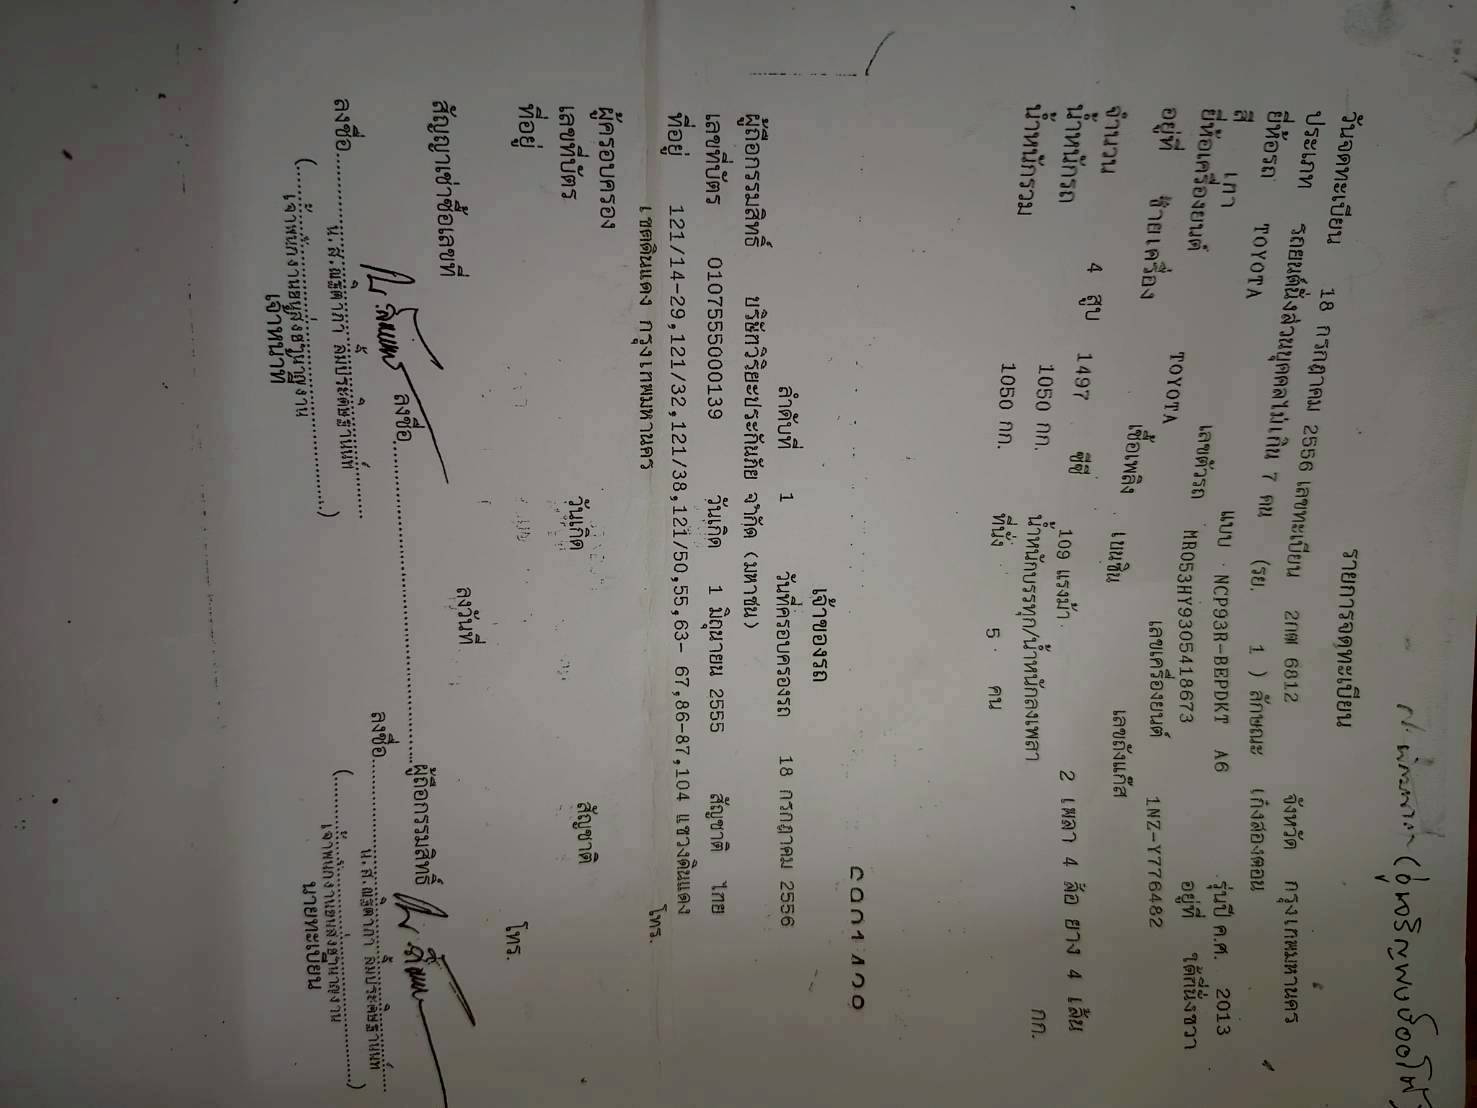 รายการจดทะเบียน
วันจดทะเบียน 18 กรกฎาคม 2556 เลขทะเบียน 2กฬ 6812 จังหวัด กรุงเทพมหานคร
ประเภท รถยนต์นั่งส่วนบุคคลไม่เกิน 7 คน (รย. 1 ) ลักษณะ เก๋งสองตอน
ยี่ห้อรถ TOYOTA แบบ NCP93R-BEPDKT A6 รุ่นปี ค.ศ. 2013
สี เทา เลขตัวรถ MR053HY9305418673 อยู่ที่ ใต้ที่นั่งขวา
ยี่ห้อเครื่องยนต์ TOYOTA เลขเครื่องยนต์ 1NZ-Y776482
อยู่ที่ ซ้ายเครื่อง เชื้อเพลิง เบนซิน เลขถังแก๊ส
จำนวน 4 สูบ 1497 ซีซี 109 แรงม้า 2 เพลา 4 ล้อ ยาง 4 เส้น
น้ำหนักรถ 1050 กก. น้ำหนักบรรทุก/น้ำหนักลงเพลา กก.
น้ำหนักรวม 1050 กก. ที่นั่ง 5 คน
เจ้าของรถ
ลำดับที่ 1 วันที่ครอบครองรถ 18 กรกฎาคม 2556
ผู้ถือกรรมสิทธิ์ บริษัทวิริยะประกันภัย จำกัด (มหาชน)
เลขที่บัตร 0107555000139 วันเกิด 1 มิถุนายน 2555 สัญชาติ ไทย
ที่อยู่ 121/14-29,121/32,121/38,121/50,55,63- 67,86-87,104 แขวงดินแดง
เขตดินแดง กรุงเทพมหานคร โทร.
ผู้ครอบครอง
เลขที่บัตร วันเกิด สัญชาติ
ที่อยู่ โทร.
สัญญาเช่าซื้อเลขที่ ลงวันที่
ลงชื่อ ผู้ถือกรรมสิทธิ์
ลงชื่อ น.ส.ณฐิตาภา ลิ้มประดิษฐานนท์ ลงชื่อ น.ส.ณฐิตาภา ลิ้มประดิษฐานนท์
เจ้าหน้าที่ นายทะเบียน